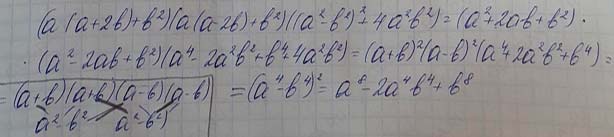 (a(a+2b)+b²)(a(a-2b)+b²)((a²-b²)²+4a²b²)=(a²+2ab+b²)·
·(a²-2ab+b²)(a⁴-2a²b²+b⁴+4a²b²)=(a+b)²(a-b)²(a⁴+2a²b²+b⁴)=
=(a+b)(a+b)(a-b)(a-b) =(a⁴-b⁴)²=a⁸-2a⁴b⁴+b⁸
a²-b² a²-b²)